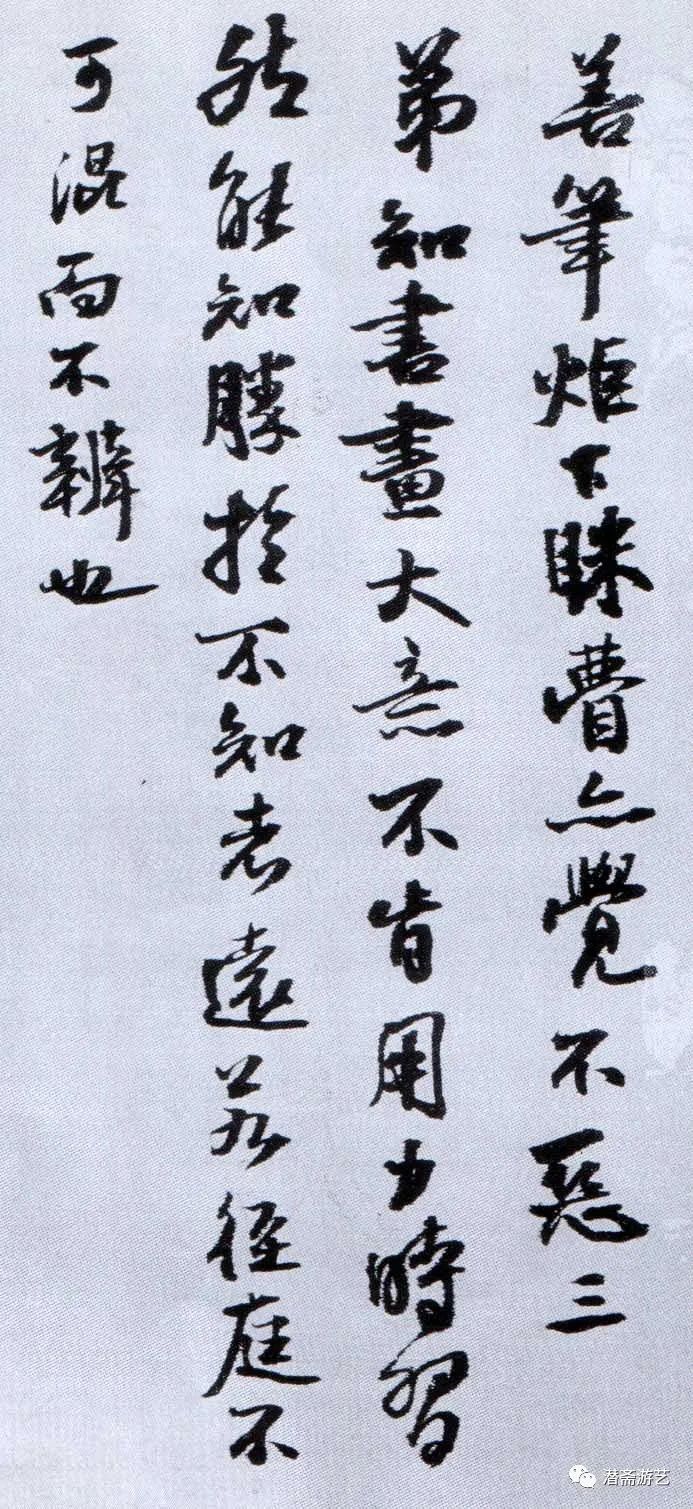 善筆炬下眯瞢亦覺不惡三
弟知書畫大意不肯用力時習
然能知勝於不知者遠若徑庭不
可混而不辨也
潜斋游艺